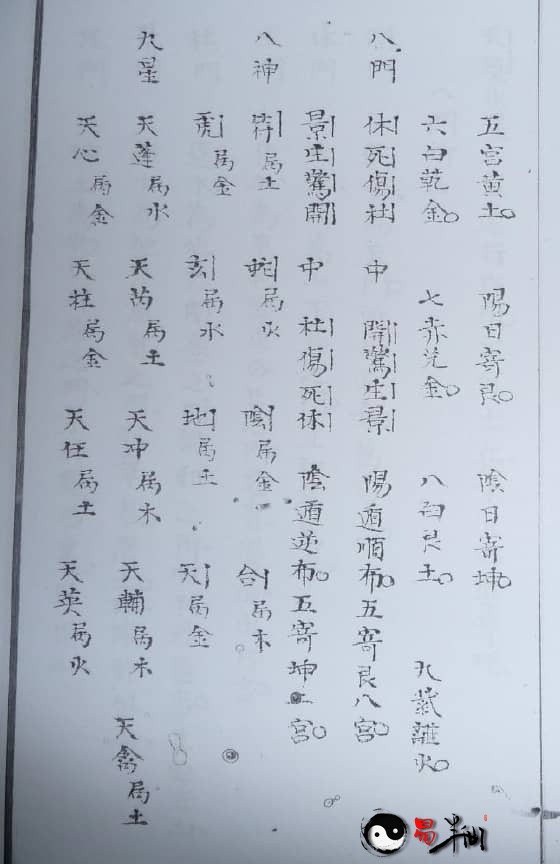 五宫黄土。陽日寄艮。陰日寄坤。
六白乾金。七赤兌金。八白艮土。九紫離火。
八門 休死傷社中開驚生景陽遁順布。五寄艮八宫。
景生驚開中社傷死休陰遁逆布。五寄坤二宫。
八神 符属土 蛇属火 陰属金 合属木
虎属金 玄属水 地属土 天属金
九星 天蓬属水 天芮属土 天冲属木 天輔属木 天禽属土
天心属金 天柱属金 天任属土 天英属火
易半仙